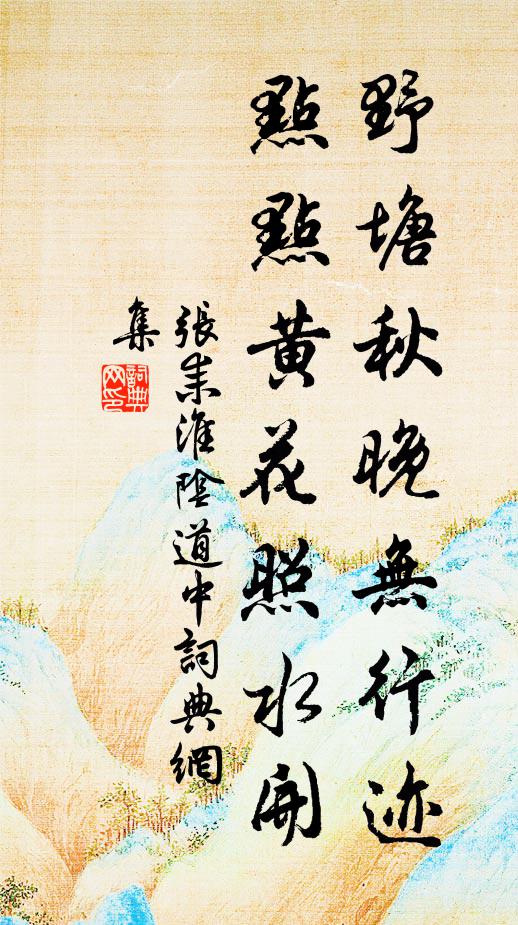 野塘秋晚無行迹
點點黃花照水開
張耒淮陰道中詞典網
集
詞典
网印